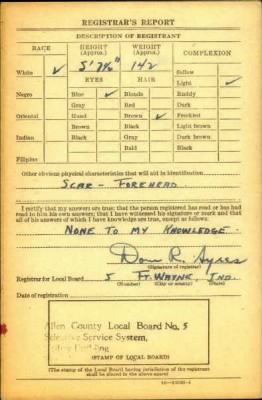 REGISTRAR'S REPORT
DESCRIPTION OF REGISTRANT
RACE HEIGHT (Approx.) WEIGHT (Approx.) COMPLEXION
5' 7½" 142
White ✓ EYES HAIR Sallow
Light ✓
Negro Blue ✓ Blonde Ruddy
Gray Red Dark
Oriental Hazel Brown ✓ Freckled
Brown Black Light brown
Indian Black Gray Dark brown
Bald Black
Filipino
Other obvious physical characteristics that will aid in identification
SCAR - FOREHEAD
I certify that my answers are true; that the person registered has read or has had
read to him his own answers; that I have witnessed his signature or mark and that
all of his answers of which I have knowledge are true, except as follows:
NONE TO MY KNOWLEDGE.
Don R. Ayres
(Signature of registrar)
Registrar for Local Board 5 FT. WAYNE, IND.
(Number) (City or county) (State)
Date of registration
Allen County Local Board No. 5
Selective Service System,
Building
(STAMP OF LOCAL BOARD)
(The stamp of the Local Board having jurisdiction of the registrant
shall be placed in the above space)